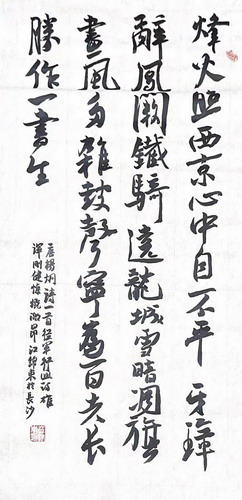 烽火照西京心中自不平牙璋
辭鳳闕鐵騎遶龍城雪暗凋旗
畫風多雜鼓聲寧為百夫長
勝作一書生
唐楊炯詩一首從軍行此詩雄
渾剛健慷慨激昂江東於長沙